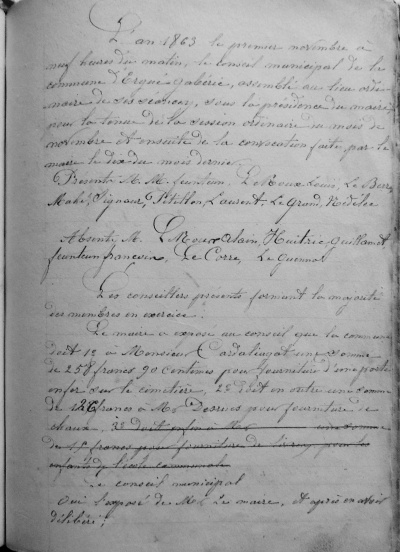 L'an 1863 le premier novembre à
neuf heures du matin, le Conseil municipal de la
commune d'Ergué gabéric, assemblé au lieu ordi-
naire de ses séances, sous la présidence du maire
pour la tenue de la session ordinaire du mois de
novembre et ensuite de la convocation faite par le
maire le dix du mois dernier.
Présents M. M. feunteun, Le Roux Louis, Le Berre
Mahé, Signour, Pétillon, Laurent, Le Grand, Nédélec
Absents M. Le Roux Alain, Huitric, Guillamot
feunteun françois, Le Corre, Le Guennou
Les conseillers présents formant la majorité
des membres en exercice.
Le maire a exposé au conseil que la commune
doit 1º à Monsieur Cardaliaguet une somme
de 258 francs 90 centimes pour fourniture d'une porte
en fer sur le cimetière, 2º doit en outre une somme
de francs à Mr Desrues pour fourniture de
chaux, 3º doit enfin à Mr une somme
de 15 francs pour fourniture de livres pour les
enfants de l'école communale
Le conseil municipal
Oui l'exposé de Mr Le maire, et après en avoir
délibéré;